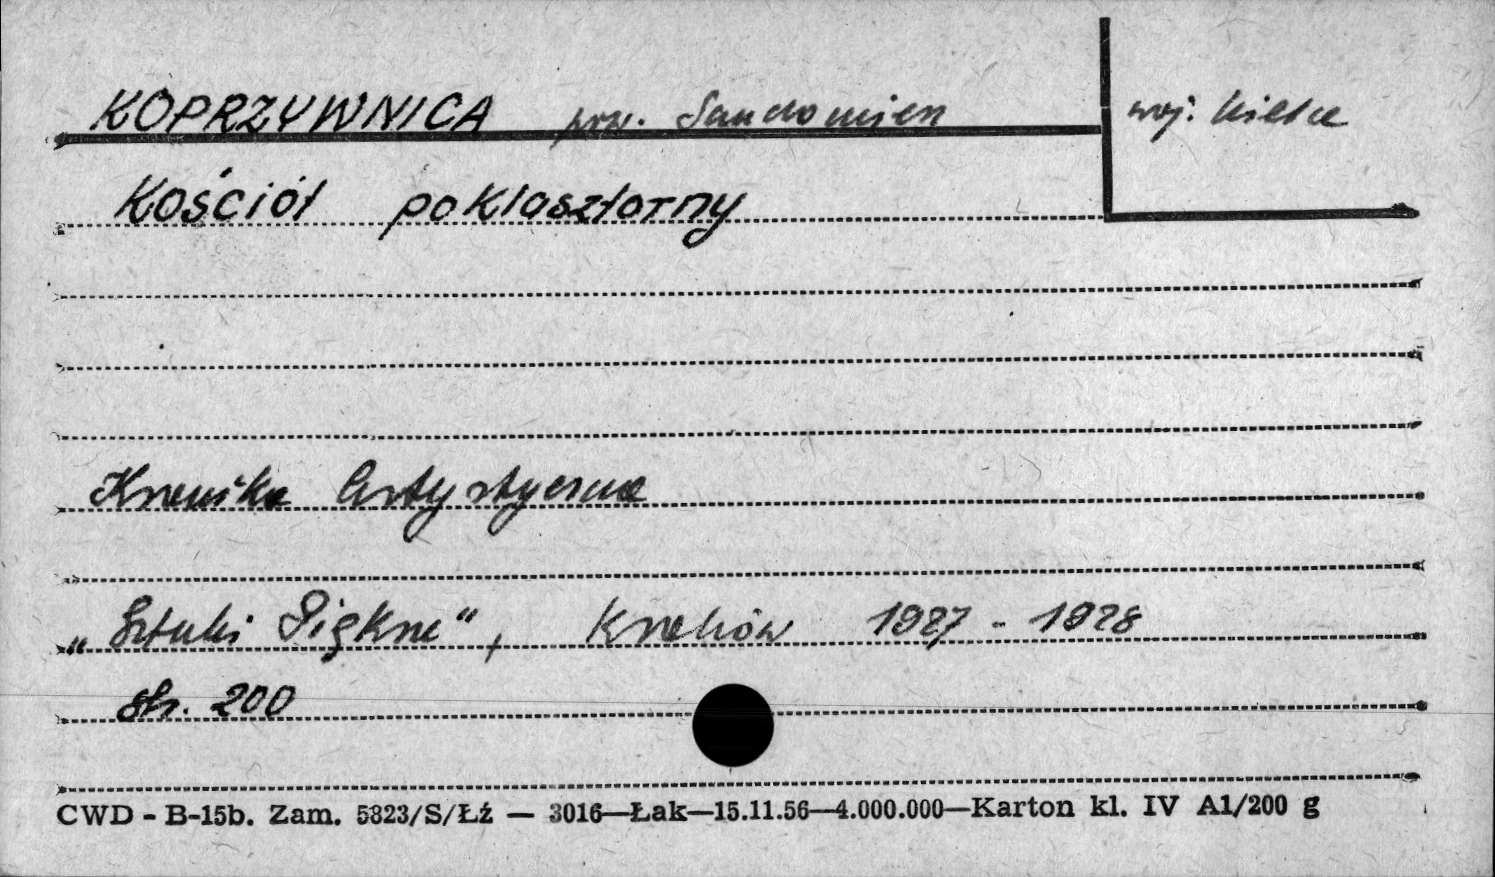 KOPRZYWNICA pow. Sandomierz woj. Kielce
Kościół poklasztorny
Kronika Artystyczna
„Sztuki Piękne", Kraków 1927 - 1928
str. 200
CWD - B-15b. Zam. 5823/S/Łź — 3016—Łak—15.11.56—4.000.000—Karton kl. IV A1/200 g